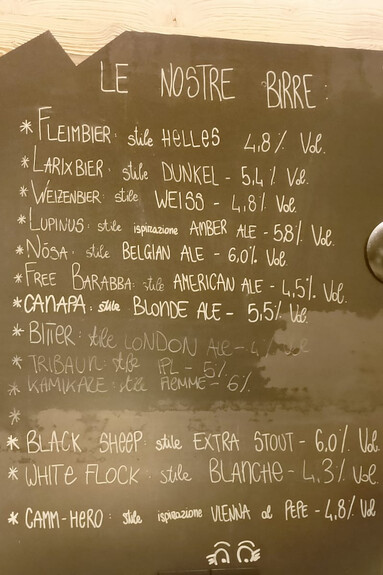 LE NOSTRE BIRRE:
* FLEIMBIER: stile HELLES 4,8% Vol.
* LARIXBIER: stile DUNKEL - 5,4% Vol.
* WEIZENBIER: stile WEISS - 4,8% Vol.
* LUPINUS: stile ispirazione AMBER ALE - 5,8% Vol.
* NÖSA: stile BELGIAN ALE - 6,0% Vol.
* FREE BARABBA: stile AMERICAN ALE - 4,5% Vol.
* CANAPA: stile BLONDE ALE - 5,5% Vol.
* BITTER: stile LONDON ALE - 4
* TRIBAUN: stile IPL - 5%
* KAMIKAZE: stile FIEMME - 6%
*
* BLACK SHEEP: stile EXTRA STOUT - 6,0% Vol.
* WHITE FLOCK: stile BLANCHE - 4,3% Vol.
* CAMM-HERO: stile ispirazione VIENNA al PEPE - 4,8% Vol